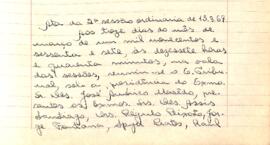 Ata da 2ª sessão ordinária de 13.3.67.
Aos treze dias do mês de
março de um mil novecentos e
sessenta e sete, às dezessete horas
e quarenta minutos, na sala
das sessões, reuniu-se o E. Tribu-
nal, sob a presidência do Exmo.
Sr. Des. José Américo Macedo, pre-
sentes os Exmos. Srs. Des. Assis
Santiago, Drs. Régulo Peixoto, Jor-
ge Fontana,